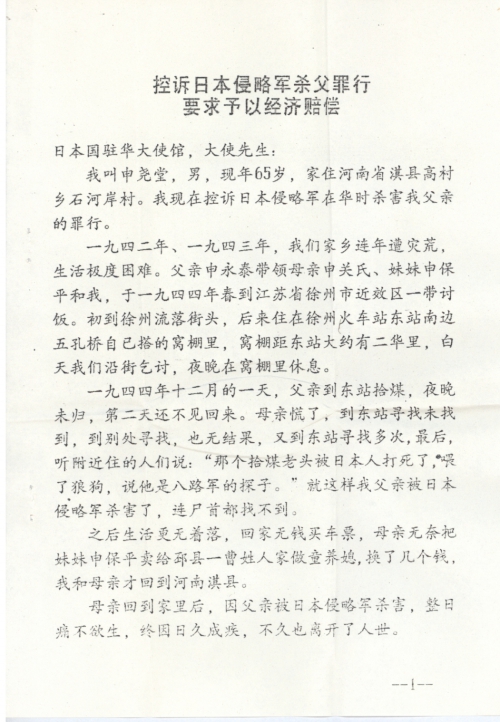 控诉日本侵略军杀父罪行
要求予以经济赔偿
日本国驻华大使馆，大使先生：
我叫申尧堂，男，现年65岁，家住河南省淇县高村
乡石河岸村。我现在控诉日本侵略军在华时杀害我父亲
的罪行。
一九四二年、一九四三年，我们家乡连年遭灾荒，
生活极度困难。父亲申永泰带领母亲申关氏、妹妹申保
平和我，于一九四四年春到江苏省徐州市近效区一带讨
饭。初到徐州流落街头，后来住在徐州火车站东站南边
五孔桥自己搭的窝棚里，窝棚距东站大约有二华里，白
天我们沿街乞讨，夜晚在窝棚里休息。
一九四四年十二月的一天，父亲到东站拾煤，夜晚
未归，第二天还不见回来。母亲慌了，到东站寻找未找
到，到别处寻找，也无结果，又到东站寻找多次，最后，
听附近住的人们说：“那个拾煤老头被日本人打死了，喂
了狼狗，说他是八路军的探子。”就这样我父亲被日本
侵略军杀害了，连尸首都找不到。
之后生活更无着落，回家无钱买车票，母亲无奈把
妹妹申保平卖给邳县一曹姓人家做童养媳，换了几个钱，
我和母亲才回到河南淇县。
母亲回到家里后，因父亲被日本侵略军杀害，整日
痛不欲生，终因日久成疾，不久也离开了人世。
--1--